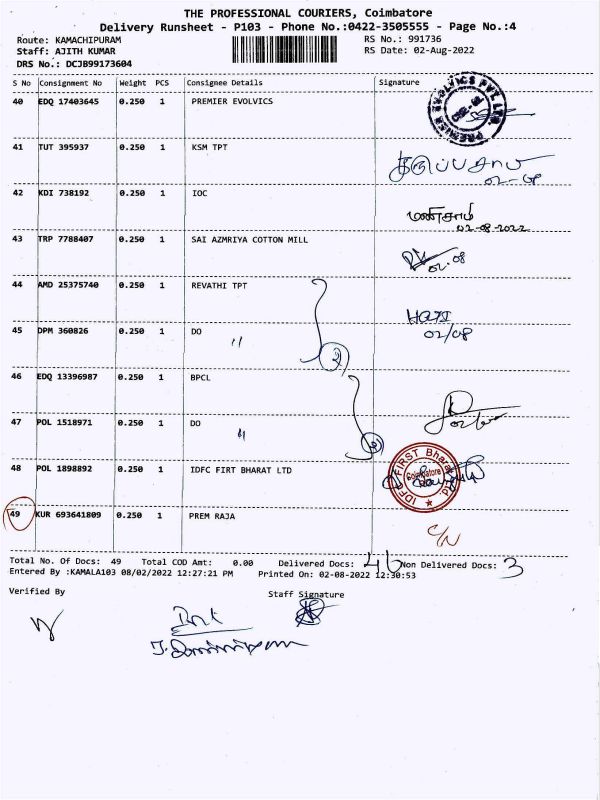 THE PROFESSIONAL COURIERS, Coimbatore
Delivery Runsheet - P103 - Phone No.:0422-3505555 - Page No.:4
Route: KAMACHIPURAM RS No.: 991736
Staff: AJITH KUMAR RS Date: 02-Aug-2022
DRS No.: DCJB99173604
S No Consignment No Weight PCS Consignee Details Signature
40 EDQ 17403645 0.250 1 PREMIER EVOLVICS
PREMIER EVOLVICS PVT LTD.
41 TUT 395937 0.250 1 KSM TPT
கருப்பசாமி
02-08
42 KDI 738192 0.250 1 IOC
02-08-2022
43 TRP 7788407 0.250 1 SAI AZMRIYA COTTON MILL
02-08
44 AMD 25375740 0.250 1 REVATHI TPT
45 DPM 360826 0.250 1 DO
〃
02/08
2
46 EDQ 13396987 0.250 1 BPCL
47 POL 1518971 0.250 1 DO
〃
2
48 POL 1898892 0.250 1 IDFC FIRT BHARAT LTD
IDFC FIRST Bharat Ltd
Coimbatore
49 KUR 693641809 0.250 1 PREM RAJA
C/N
Total No. Of Docs: 49 Total COD Amt: 0.00 Delivered Docs: 46 Non Delivered Docs: 3
Entered By :KAMALA103 08/02/2022 12:27:21 PM Printed On: 02-08-2022 12:30:53
Verified By Staff Signature